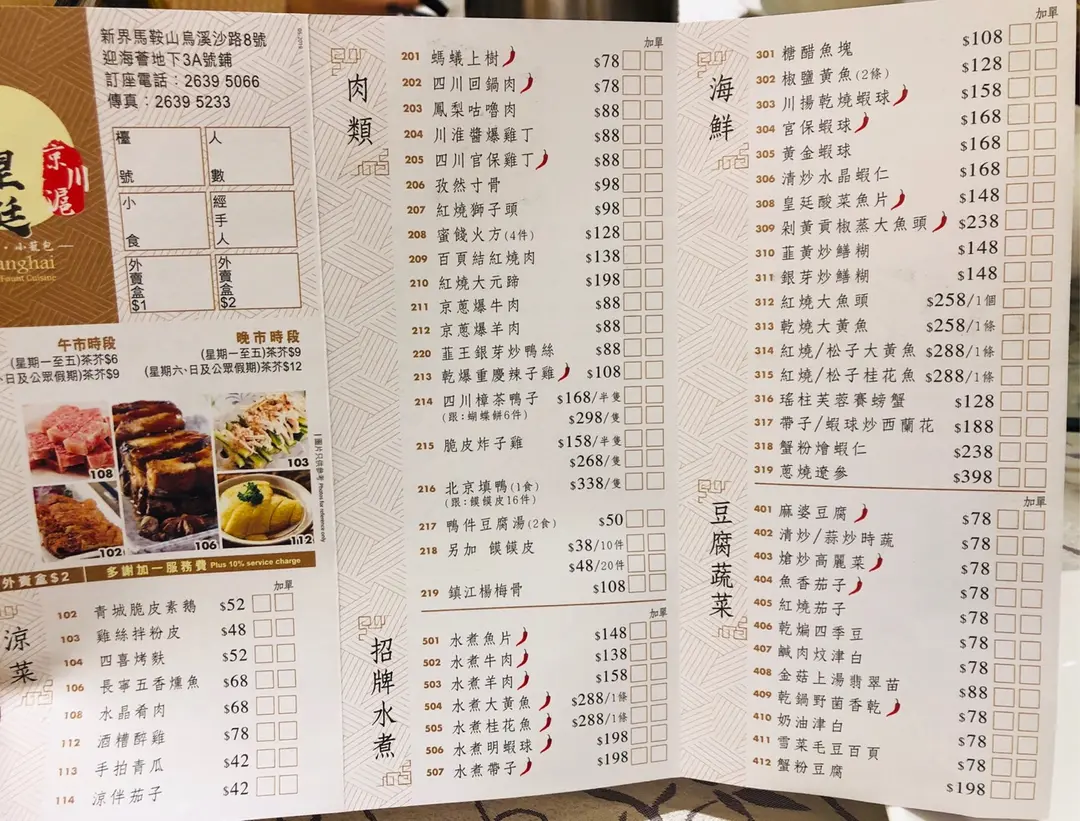 新界馬鞍山烏溪沙路8號
迎海薈地下3A號鋪
訂座電話：2639 5066
傳真：2639 5233
檯號
人數
小食
經手人
外賣盒$1
外賣盒$2
京川滬
小籠包
anghai
Fount Cuisine
午市時段
(星期一至五)茶芥$6
日及公眾假期)茶芥$9
晚市時段
(星期一至五)茶芥$9
(星期六、日及公眾假期)茶芥$12
108
102
106
103
112
圖片只供參考 Photos for reference only
外賣盒$2
多謝加一服務費 Plus 10% service charge
涼菜
加單
102 青城脆皮素鵝 $52
103 雞絲拌粉皮 $48
104 四喜烤麩 $52
106 長寧五香燻魚 $68
108 水晶肴肉 $68
112 酒糟醉雞 $78
113 手拍青瓜 $42
114 涼伴茄子 $42
肉類
加單
201 螞蟻上樹 $78
202 四川回鍋肉 $78
203 鳳梨咕嚕肉 $88
204 川淮醬爆雞丁 $88
205 四川官保雞丁 $88
206 孜然寸骨 $98
207 紅燒獅子頭 $98
208 蜜餞火方(4件) $128
209 百頁結紅燒肉 $138
210 紅燒大元蹄 $198
211 京蔥爆牛肉 $88
212 京蔥爆羊肉 $88
220 韮王銀芽炒鴨絲 $88
213 乾爆重慶辣子雞 $108
214 四川樟茶鴨子 $168/半隻
(跟：蝴蝶餅6件) $298/隻
215 脆皮炸子雞 $158/半隻
$268/隻
216 北京填鴨(1食) $338/隻
(跟：饃饃皮16件)
217 鴨件豆腐湯(2食) $50
218 另加 饃饃皮 $38/10件
$48/20件
219 鎮江楊梅骨 $108
招牌水煮
加單
501 水煮魚片 $148
502 水煮牛肉 $138
503 水煮羊肉 $158
504 水煮大黃魚 $288/1條
505 水煮桂花魚 $288/1條
506 水煮明蝦球 $198
507 水煮帶子 $198
海鮮
加單
301 糖醋魚塊 $108
302 椒鹽黃魚(2條) $128
303 川揚乾燒蝦球 $158
304 宮保蝦球 $168
305 黃金蝦球 $168
306 清炒水晶蝦仁 $168
308 皇廷酸菜魚片 $148
309 剁黃貢椒蒸大魚頭 $238
310 韮黃炒鱔糊 $148
311 銀芽炒鱔糊 $148
312 紅燒大魚頭 $258/1個
313 乾燒大黃魚 $258/1條
314 紅燒/松子大黃魚 $288/1條
315 紅燒/松子桂花魚 $288/1條
316 瑤柱芙蓉賽螃蟹 $128
317 帶子/蝦球炒西蘭花 $188
318 蟹粉燴蝦仁 $238
319 蔥燒遼參 $398
豆腐蔬菜
加單
401 麻婆豆腐 $78
402 清炒/蒜炒時蔬 $78
403 熗炒高麗菜 $78
404 魚香茄子 $78
405 紅燒茄子 $78
406 乾煸四季豆 $78
407 鹹肉炆津白 $78
408 金菇上湯翡翠苗 $88
409 乾鍋野菌香乾 $78
410 奶油津白 $78
411 雪菜毛豆百頁 $78
412 蟹粉豆腐 $198